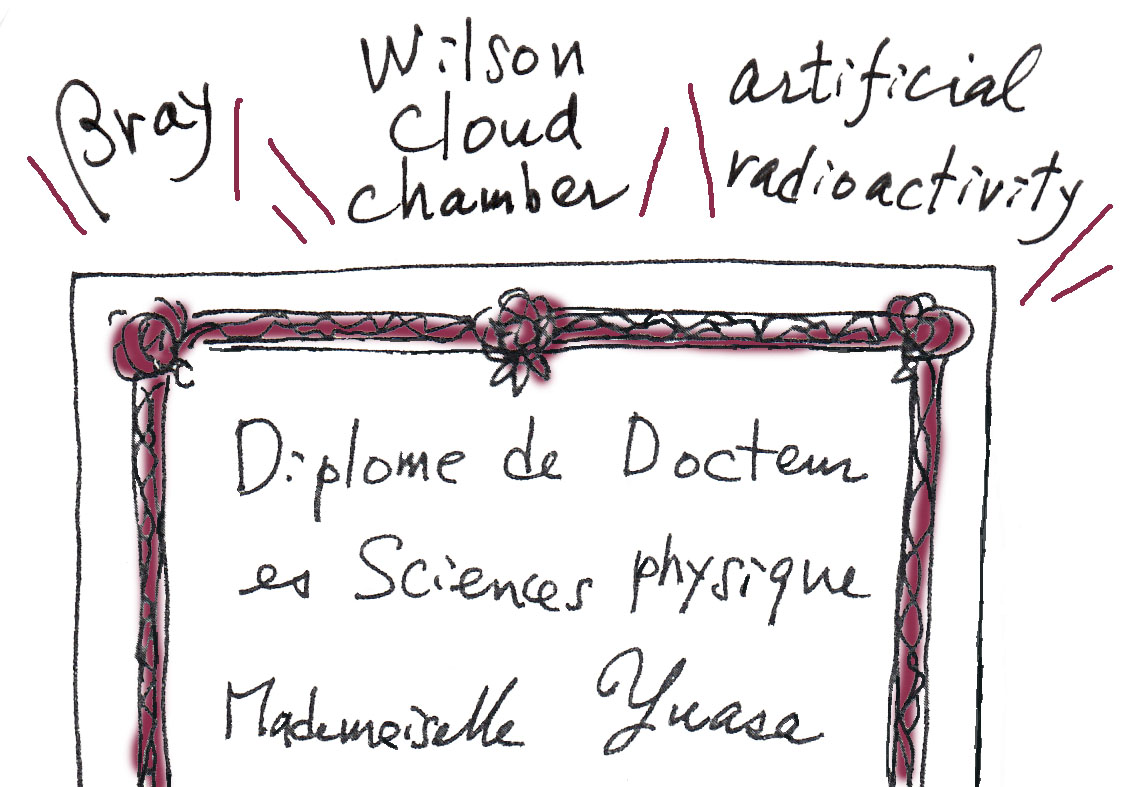 βray
Wilson
Cloud
chamber
artificial
radioactivity
Diplome de Docteur
es Sciences physique
Mademoiselle Yuasa